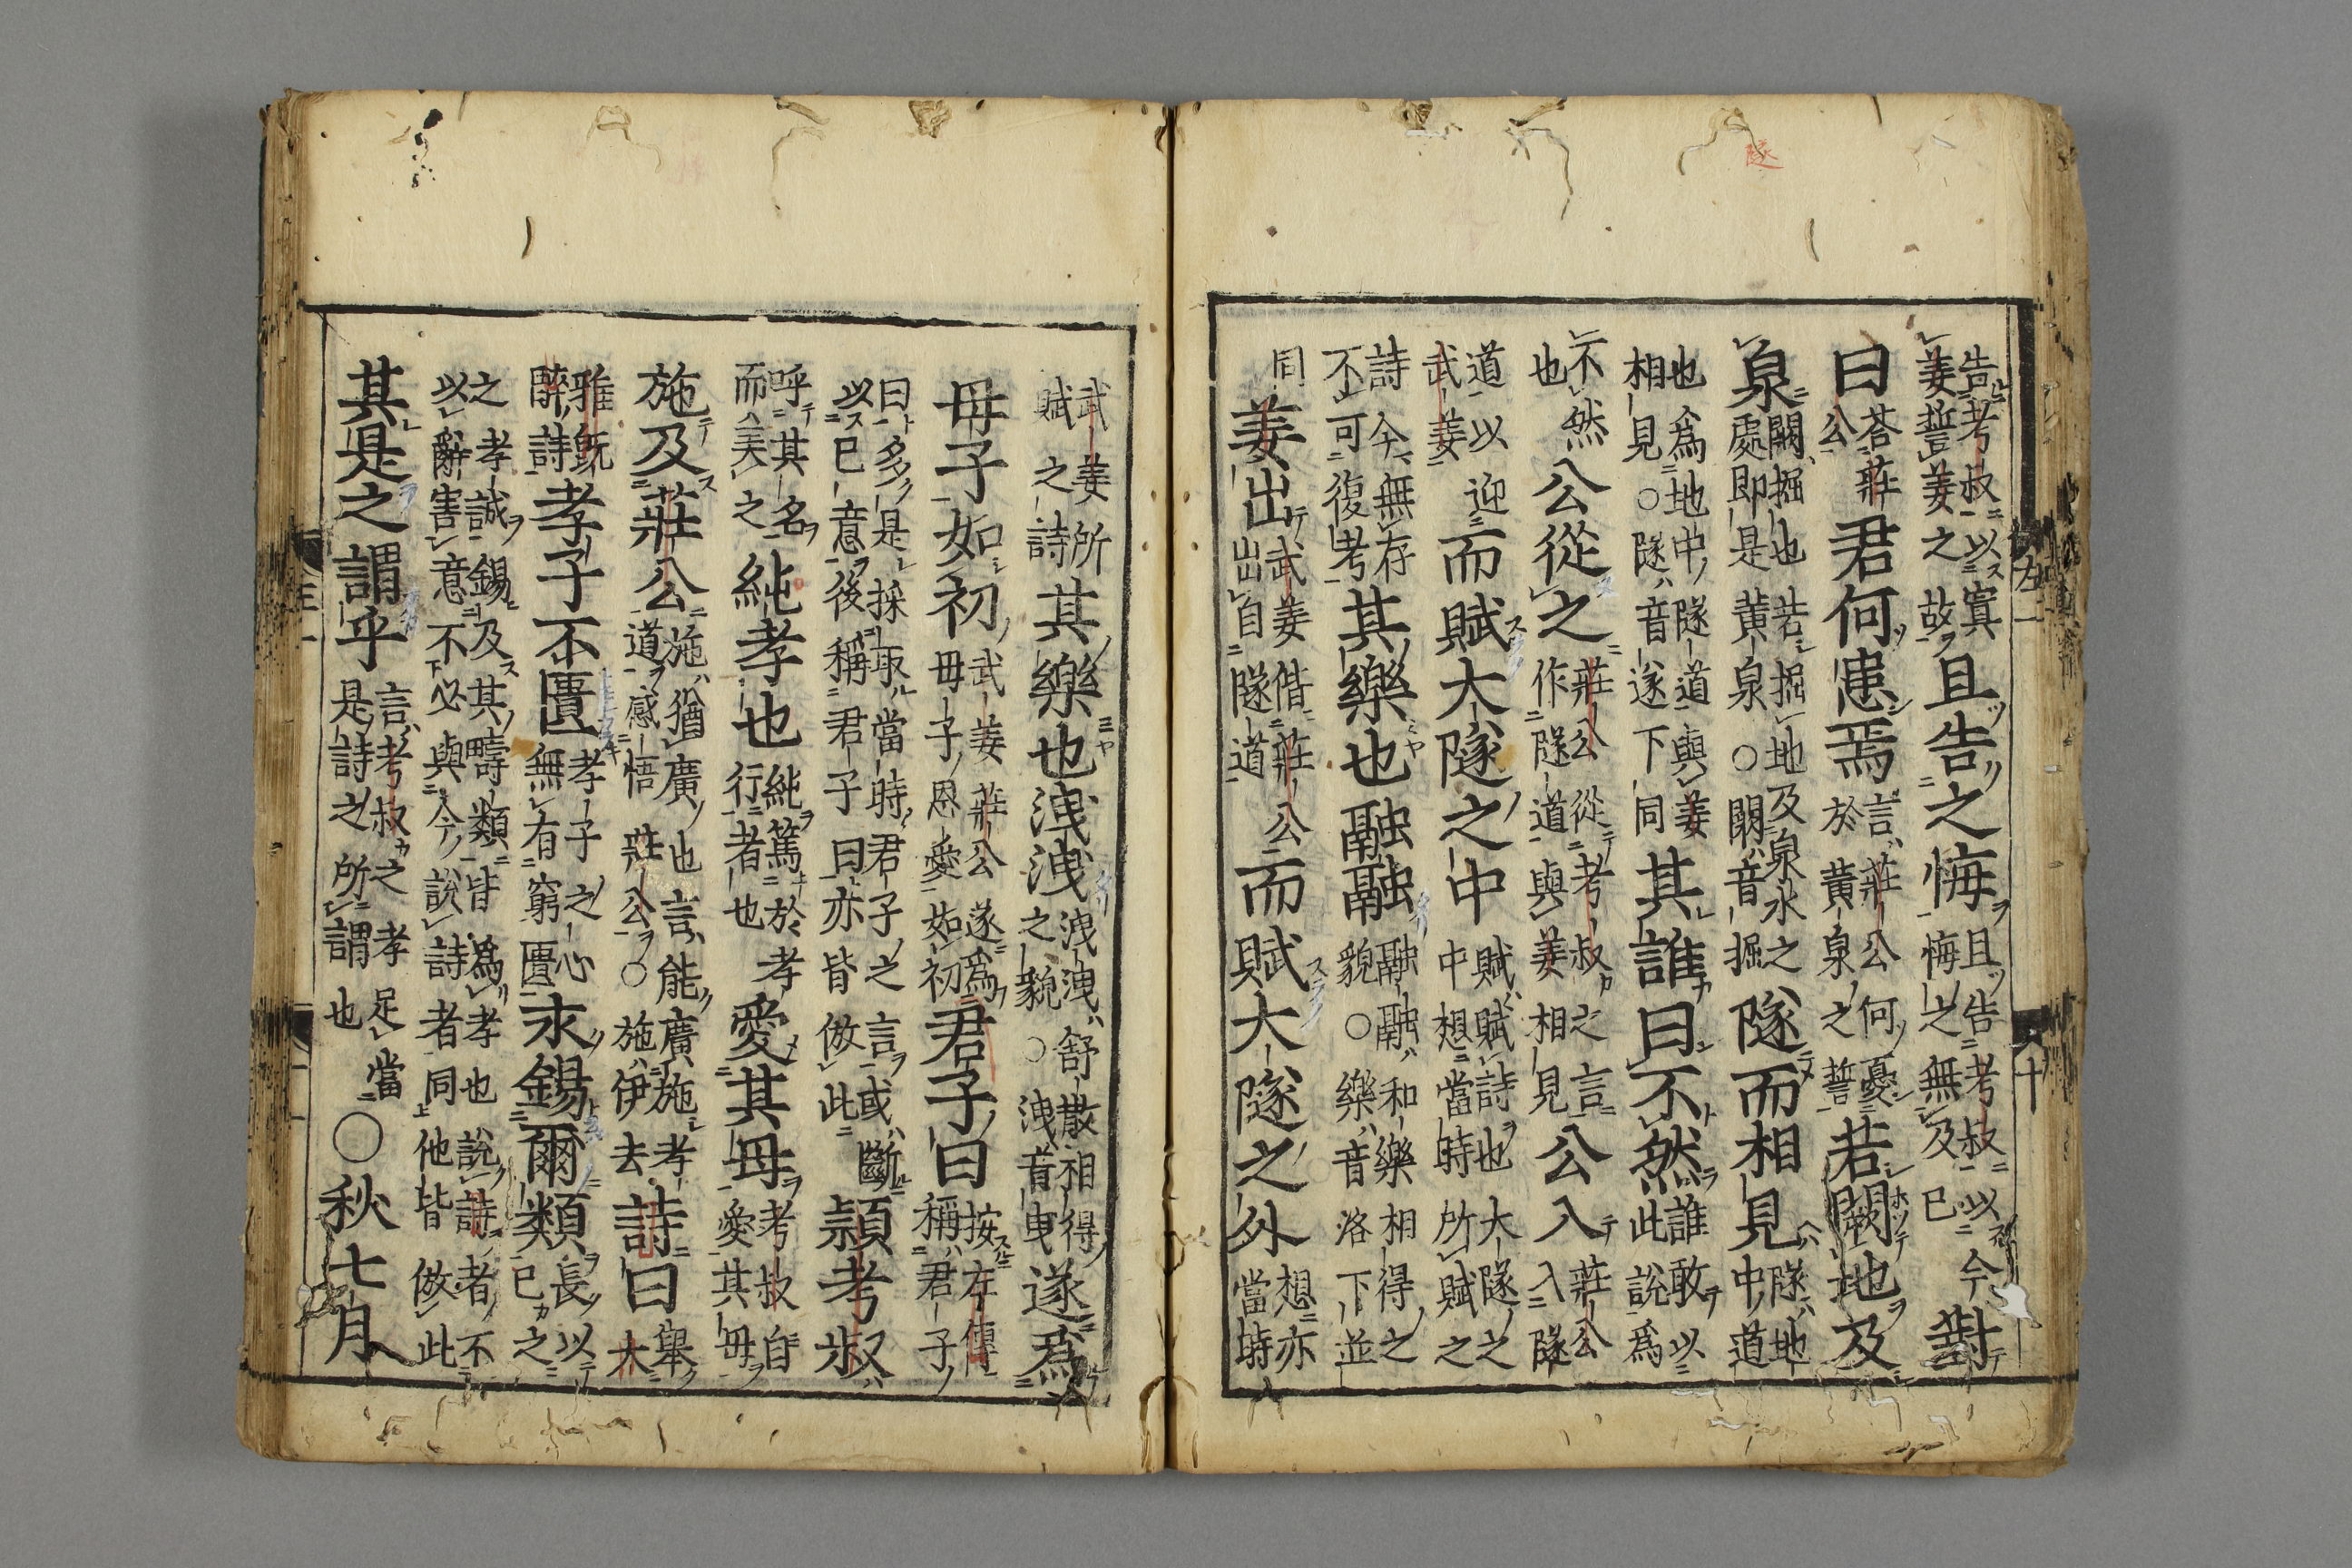 告考叔以寘姜誓姜之故且告之悔且告考叔以今悔之無及已對
曰荅莊公君何患焉言莊公何憂於黄泉之誓若闕地及
泉闕掘也若掘地及泉水之處即是黄泉○闕音掘隧而相見隧地中道
也為地中隧道與姜相見○隧音遂下同其誰曰不然誰敢以此說為
不然也公從之莊公從考叔之言作隧道與姜相見公入莊公入隧
道以迎武姜而賦大隧之中賦賦詩也大隧之中想當時所賦之
詩今無存不可復考其樂也融融融融和樂相得之貌○樂音洛下並
同姜出武姜偕莊公出自隧道而賦大隧之外想亦當時
武姜所賦之詩其樂也洩洩洩洩舒散相得之貌○洩音曳遂為
母子如初武姜莊公遂為母子恩愛如初君子曰按左傳稱君子
曰多是採取當時君子之言或斷以己意後稱君子曰亦皆倣此潁考叔
呼其名而美之純孝也純篤於孝行者也愛其母考叔自愛其母
施及莊公施猶廣也言能廣施孝道感悟莊公○施伊去詩曰舉大
雅既醉詩孝子不匱孝子之心無有窮匱永錫爾類長以己之
之孝誠錫及其疇類皆為孝也說詩者不以辭害意不必與今說詩者同他皆倣此
其是之謂乎言考叔之孝足當是詩之所謂也○秋七月
左一
十
隧